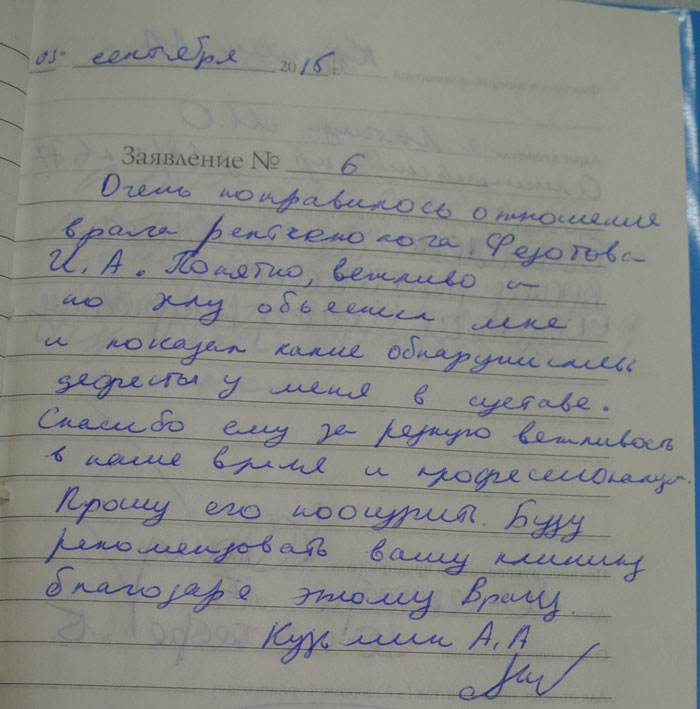 05 сентября 2015 г.
Заявление № 6
Очень понравилось отношение
врача рентгенолога Федотова
И. А. Понятно, вежливо и
по делу объяснил мне
и показал какие обнаружились
дефекты у меня в суставе.
Спасибо ему за редкую вежливость
в наше время и професионализм.
Прошу его поощрить. Буду
рекомендовать вашу клинику
благодаря этому Врачу.
Кузьмин А. А